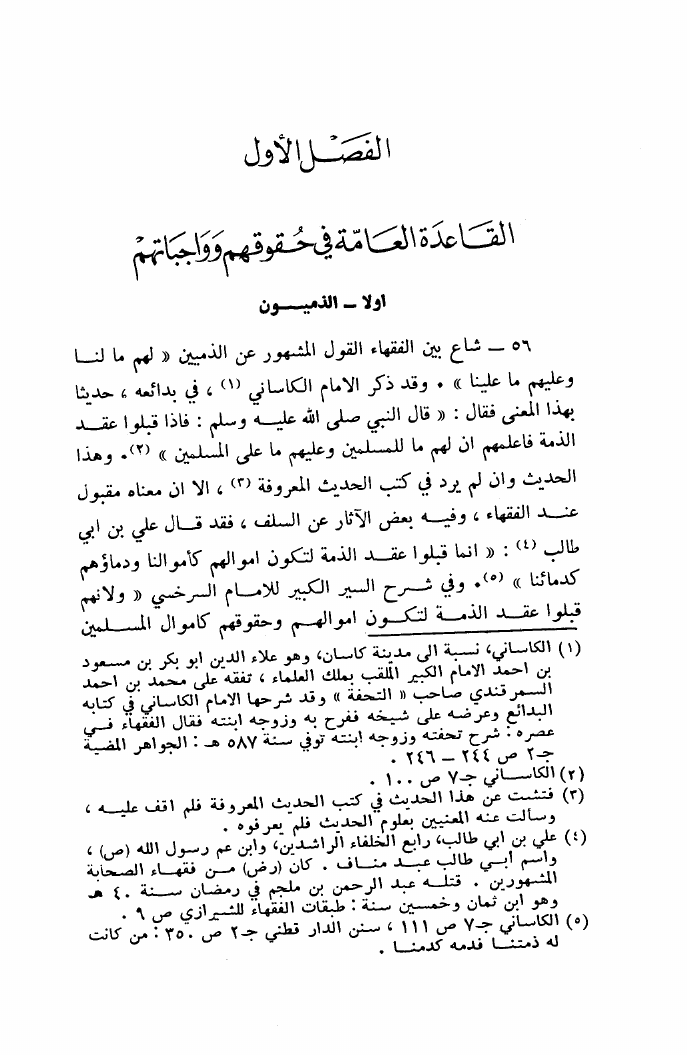 الفصل الأول
القاعدة العامة في حقوقهم وواجباتهم
اولا ــ الذميــون
٥٦ ــ شاع بين الفقهاء القول المشهور عن الذميين « لهم ما لنا
وعليهم ما علينا » . وقد ذكر الامام الكاساني (١) ، في بدائعه ، حديثا
بهذا المعنى فقال : « قال النبي صلى الله عليه وسلم : فاذا قبلوا عقد
الذمة فاعلمهم ان لهم ما للمسلمين وعليهم ما على المسلمين » (٢). وهذا
الحديث وان لم يرد في كتب الحديث المعروفة (٣) ، الا ان معناه مقبول
عند الفقهاء ، وفيه بعض الآثار عن السلف ، فقد قال علي بن ابي
طالب (٤) : « انما قبلوا عقد الذمة لتكون اموالهم كأموالنا ودماؤهم
كدمائنا » (٥). وفي شرح السير الكبير للامام السرخسي « ولانهم
قبلوا عقد الذمة لتكون اموالهم وحقوقهم كاموال المسلمين
(١) الكاساني، نسبة الى مدينة كاسان، وهو علاء الدين ابو بكر بن مسعود
بن احمد الامام الكبير الملقب بملك العلماء ، تفقه على محمد بن احمد
السمرقندي صاحب « التحفة » وقد شرحها الامام الكاساني في كتابه
البدائع وعرضه على شيخه ففرح به وزوجه ابنته فقال الفقهاء في
عصره : شرح تحفته وزوجه ابنته توفي سنة ٥٨٧ هـ : الجواهر المضية
جـ٢ ص ٢٤٤ ــ ٢٤٦ .
(٢) الكاساني جـ٧ ص ١٠٠ .
(٣) فتشت عن هذا الحديث في كتب الحديث المعروفة فلم اقف عليه ،
وسالت عنه المعنيين بعلوم الحديث فلم يعرفوه .
(٤) علي بن ابي طالب، رابع الخلفاء الراشدين، وابن عم رسول الله (ص) ،
واسم ابي طالب عبد مناف . كان (رض) من فقهاء الصحابة
المشهورين . قتله عبد الرحمن بن ملجم في رمضان سنة ٤٠ هـ
وهو ابن ثمان وخمسين سنة : طبقات الفقهاء للشيرازي ص ٩ .
(٥) الكاساني جـ٧ ص ١١١ ، سنن الدار قطني جـ٢ ص ٣٥٠ : من كانت
له ذمتنا فدمه كدمنا .